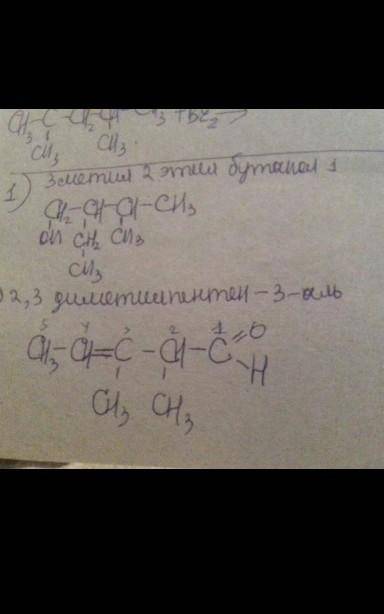 CH3-C-CH2-CH-CH3 + Br2 →
CH3 CH3
1) 3 метил 2 этил бутанол 1
CH2-CH-CH-CH3
OH CH2 CH3
CH3
2,3 диметилпентен-3-аль
5 4 3 2 1
CH3-CH=C-CH-C=O
H
CH3 CH3